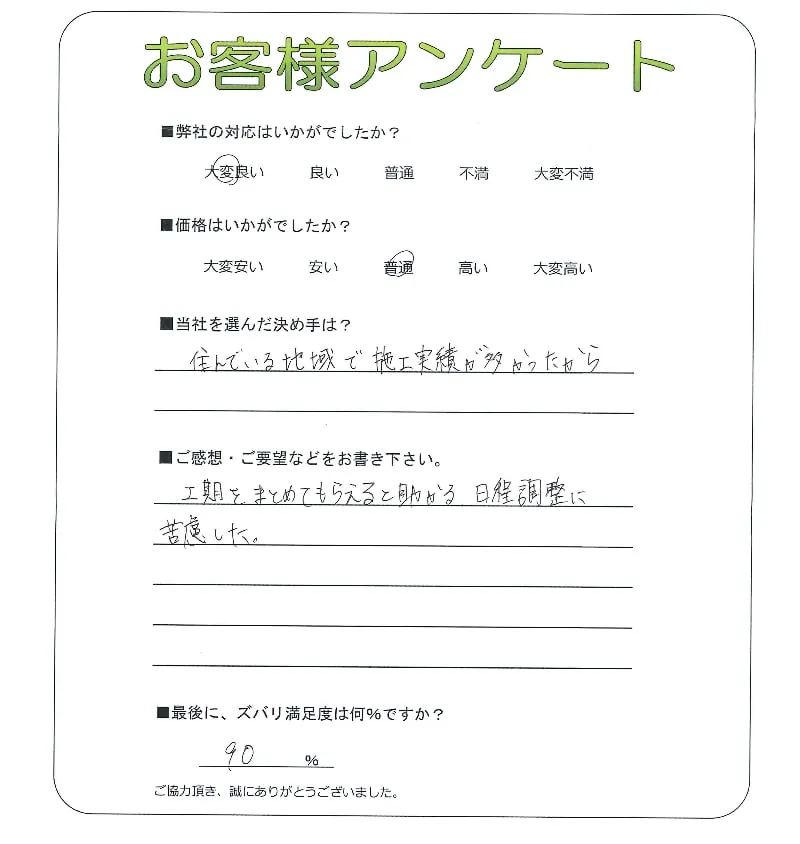 お客様アンケート
■弊社の対応はいかがでしたか？
大変良い 良い 普通 不満 大変不満
■価格はいかがでしたか？
大変安い 安い 普通 高い 大変高い
■当社を選んだ決め手は？
住んでいる地域で施工実績が多かったから
■ご感想・ご要望などをお書き下さい。
工期をまとめてもらえると助かる 日程調整に
苦慮した。
■最後に、ズバリ満足度は何%ですか？
90 %
ご協力頂き、誠にありがとうございました。